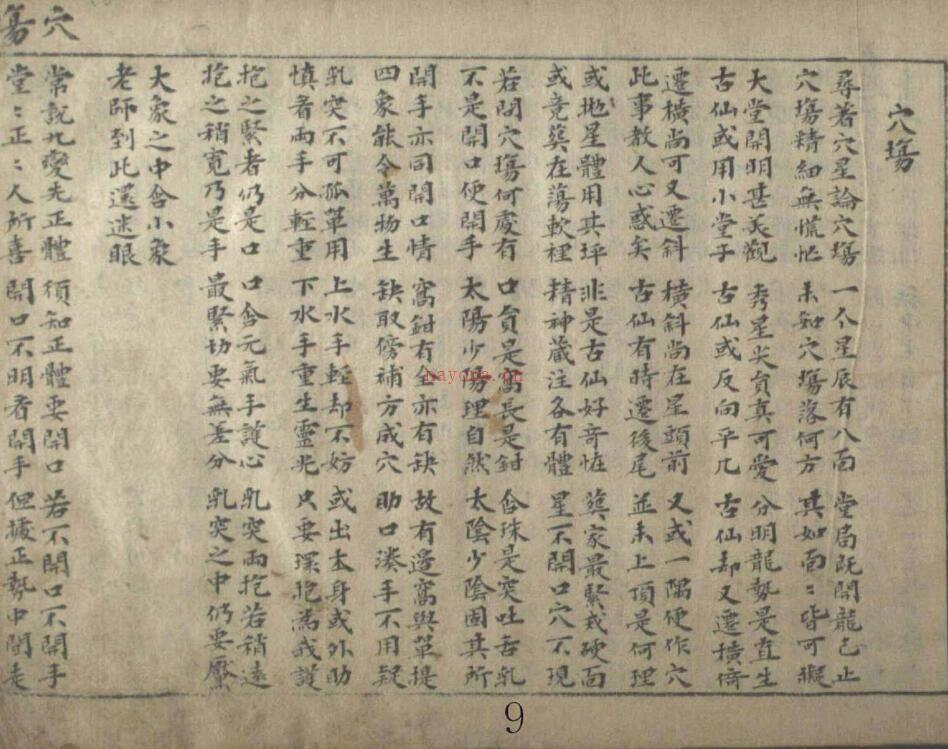 穴塲
穴塲
尋著穴星論穴塲 一个星辰有八面 堂局既開龍已止
穴塲精細無慌忙 未知穴塲落何方 其如面〻皆可擬
大堂開明甚美觀 秀星尖貟真可愛 分明龍勢是直生
古仙或用小堂子 古仙或反向平几 古仙却又遷横倚
遷横尚可又遷斜 横斜尚在星頭前 又或一隅便作穴
此事教人心惑矣 古仙有時遷後尾 並未上頂是何理
或地星體用其坪 非是古仙好奇怪 葬家最緊戒硬面
或竟葬在蕩軟裡 精神藏注各有體 星不開口穴不現
若問穴塲何處有 口貟是窩長是鉗 含珠是突吐舌乳
不是開口便開手 太陽少陽理自然 太陰少陰固其所
開手亦同開口情 窩鉗有全亦有缺 故有邊窩與單提
四象能令萬物生 缺取傍補方成穴 助口湊手不用疑
乳突不可孤單用 上水手輕却不妨 或出本身或外助
慎者兩手分輕重 下水手重生靈光 只要環抱為我護
抱之緊者仍是口 口含元氣手護心 乳突兩抱若稍遠
抱之稍寛乃是手 最緊切要無差分 乳突之中仍要壓
大象之中含小象
老師到此還迷眼
常說九變先正體 須知正體要開口 若不開口不開手
堂〻正〻人所喜 開口不明者開手 但據正勢中間走
nayona.cn
9